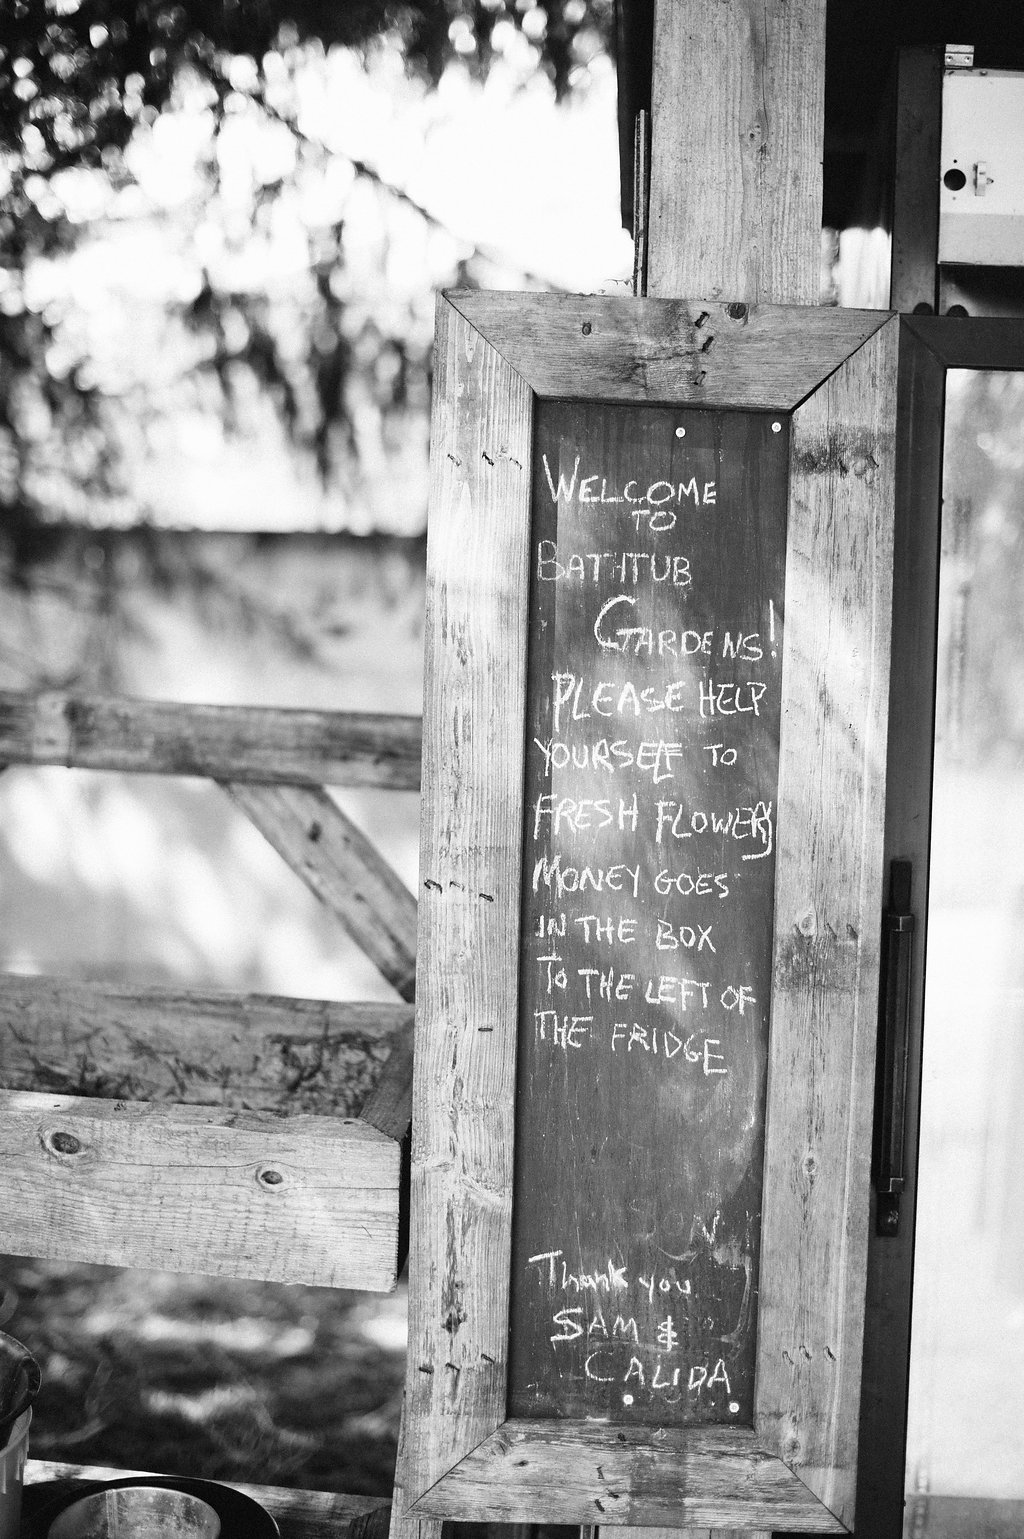 WELCOME
TO
BATHTUB
GARDENS!
PLEASE HELP
YOURSELF TO
FRESH FLOWERS
MONEY GOES
IN THE BOX
TO THE LEFT OF
THE FRIDGE
Thank you
SAM &
CALIDA